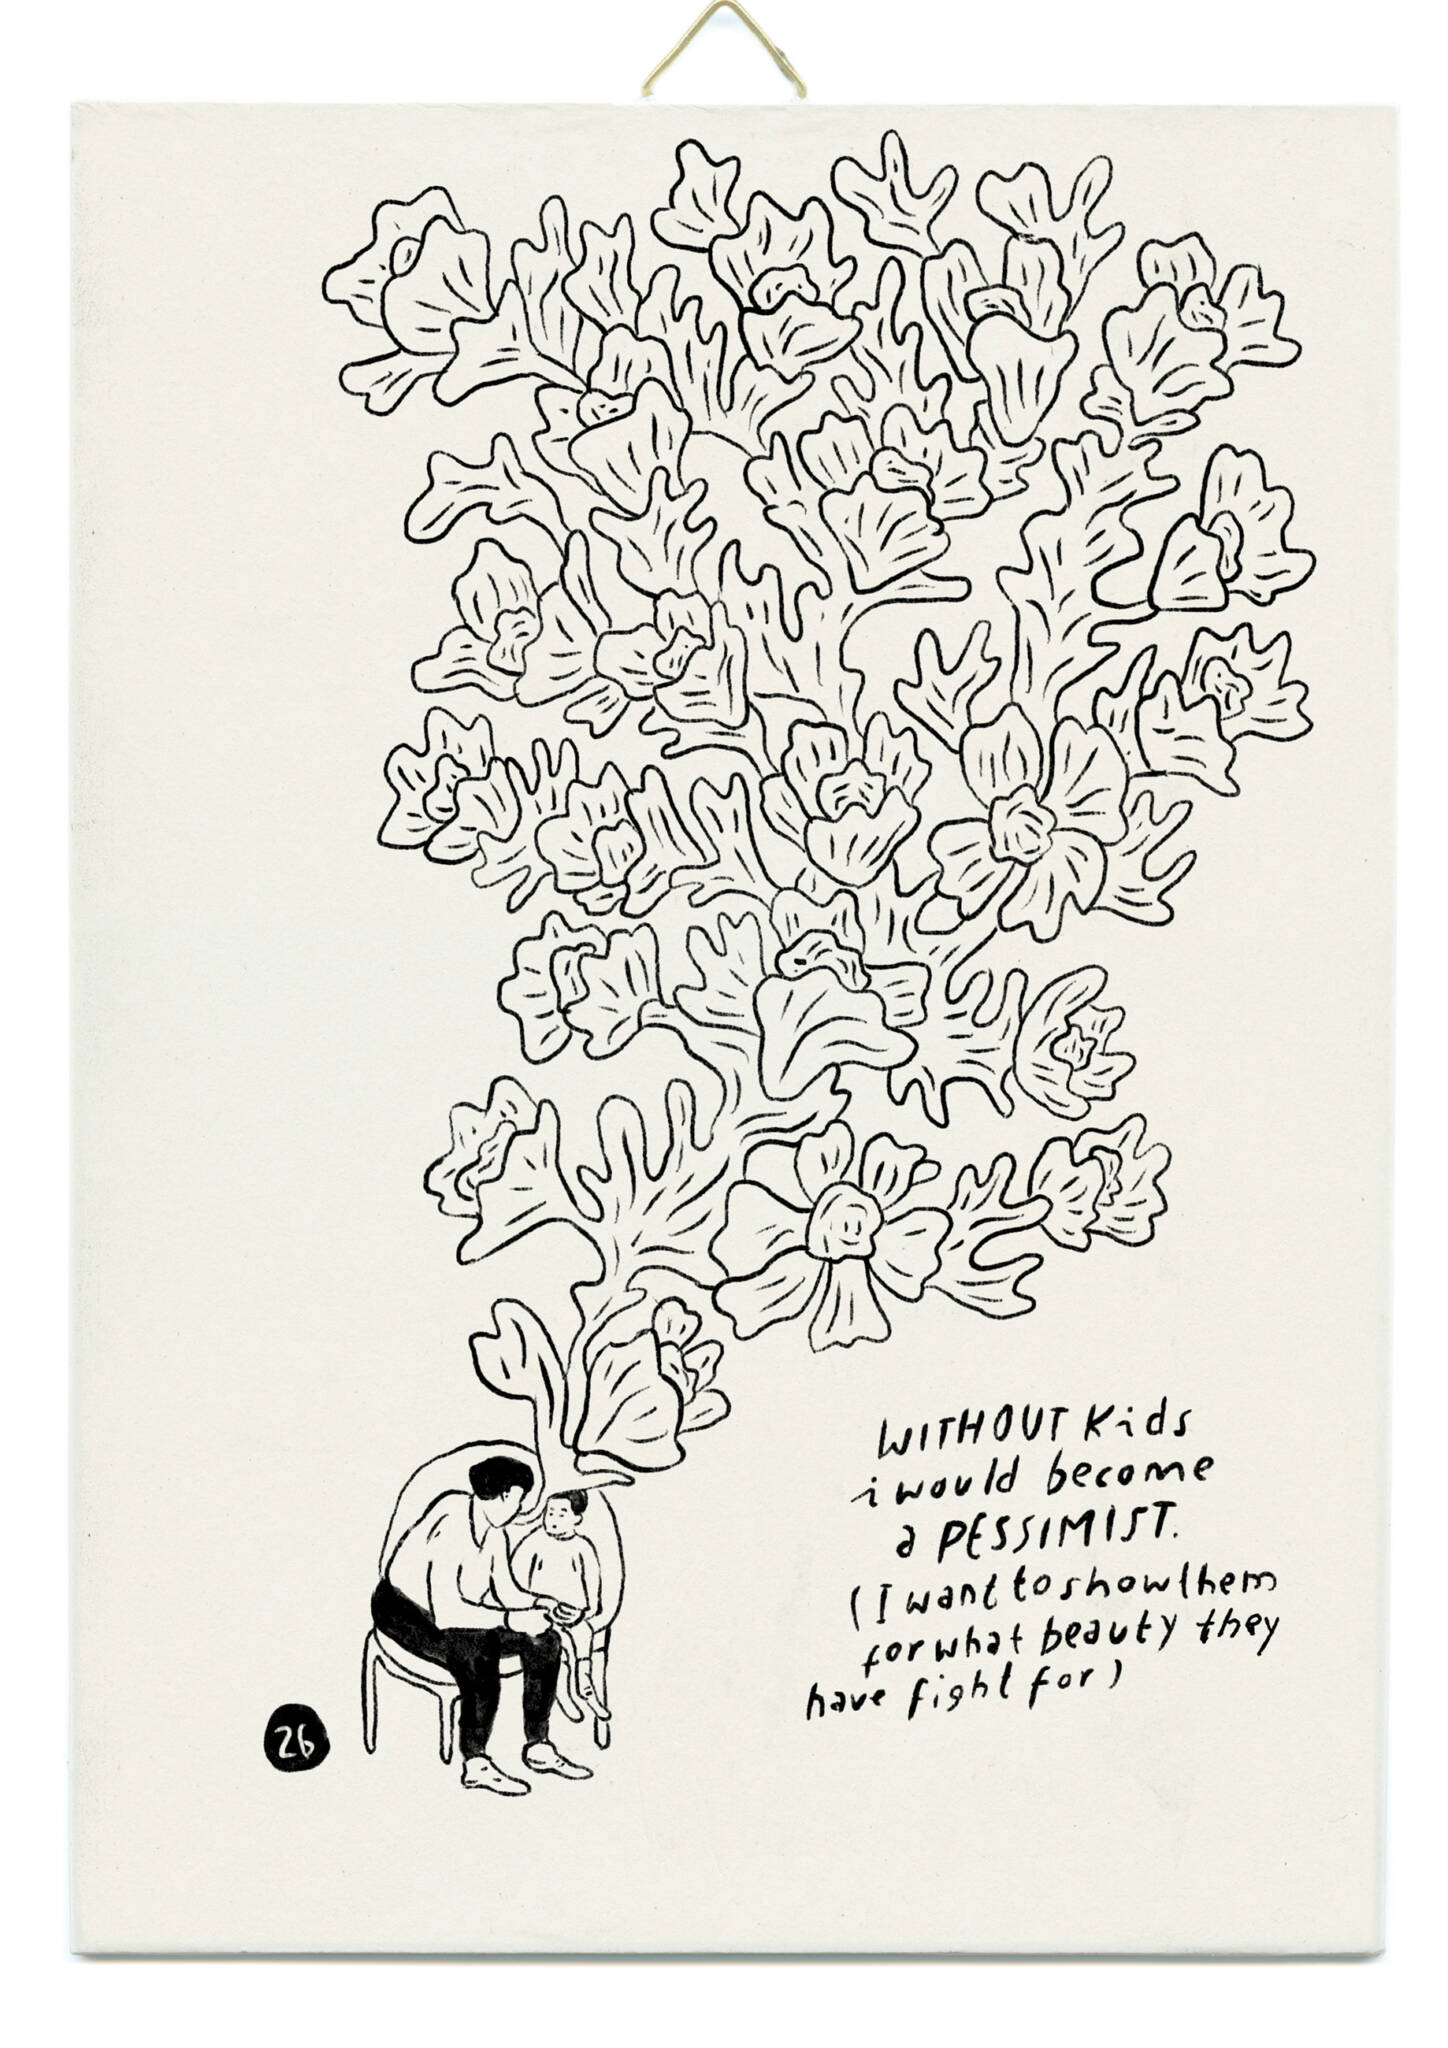 WITHOUT Kids
i would become
a PESSIMIST.
(I want to show them
for what beauty they
have fight for)
26